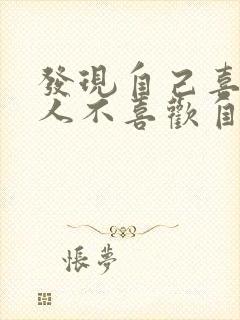 發現自己喜
人不喜歡自
悵夢